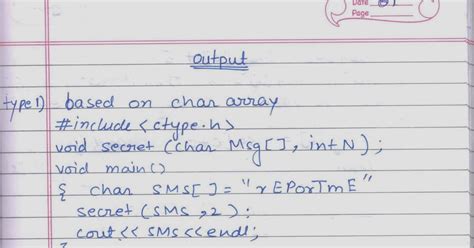 Date
Page
Output
type 1) based on char array
#include <ctype.h>
void secret (char Msg[], int N);
void main()
{ char SMS[] = "rEPorTmE"
secret (SMS, 2);
cout << SMS << endl;